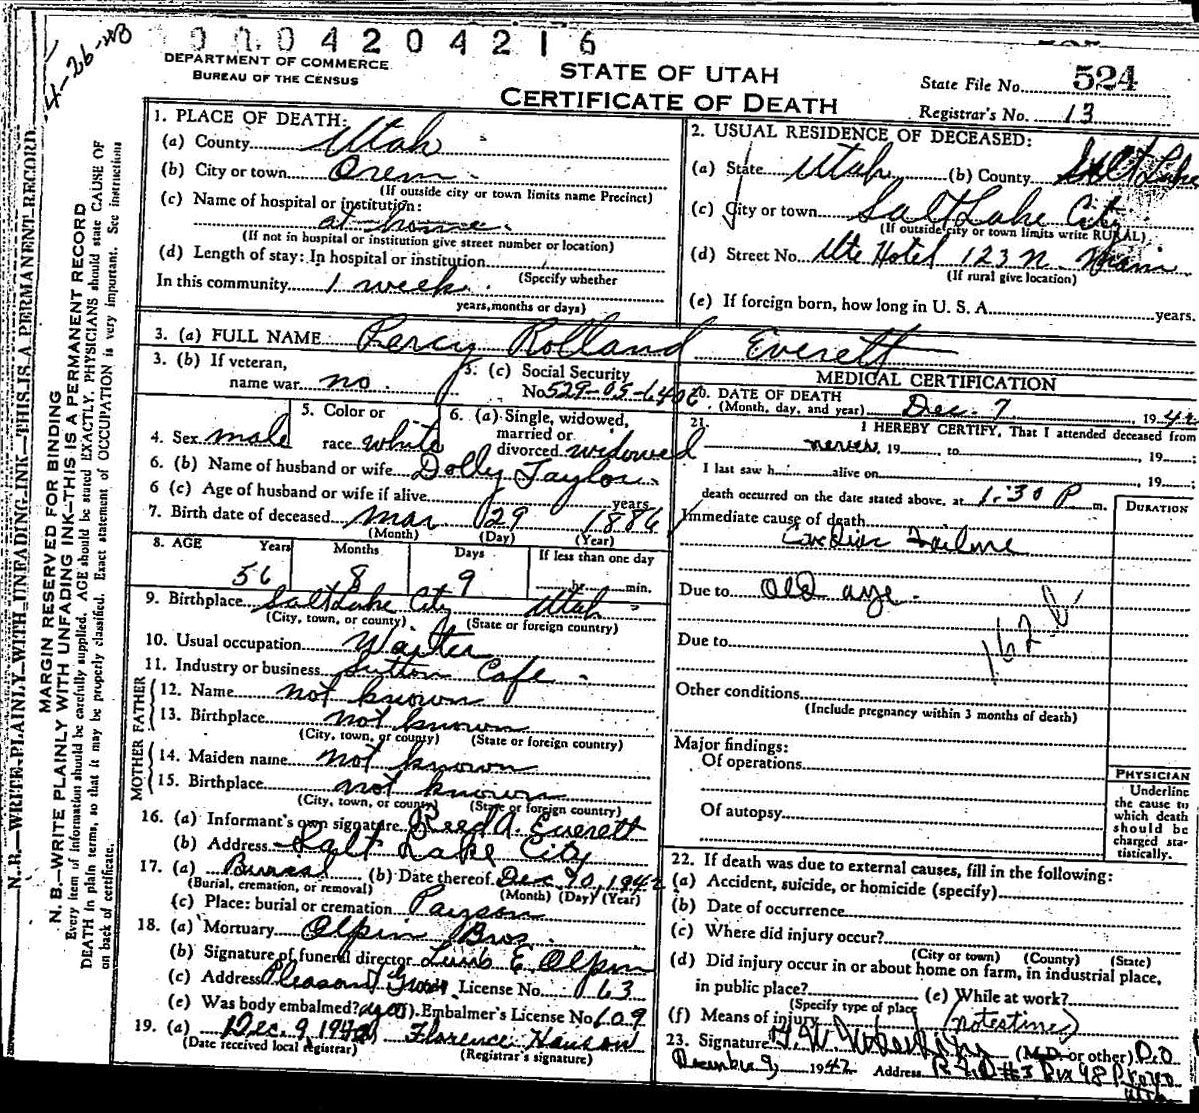 4-26-
0004204216
DEPARTMENT OF COMMERCE
BUREAU OF THE CENSUS
STATE OF UTAH
CERTIFICATE OF DEATH
State File No. 524
Registrar's No. 13
N. B.—WRITE PLAINLY WITH UNFADING INK—THIS IS A PERMANENT RECORD
MARGIN RESERVED FOR BINDING
N. B.—WRITE PLAINLY WITH UNFADING INK—THIS IS A PERMANENT RECORD
Every item of information should be carefully supplied. AGE should be stated EXACTLY. PHYSICIANS should state CAUSE OF
DEATH in plain terms, so that it may be properly classified. Exact statement of OCCUPATION is very important. See instructions
on back of certificate.
1. PLACE OF DEATH:
(a) County Utah
(b) City or town Orem
(If outside city or town limits name Precinct)
(c) Name of hospital or institution:
at home
(If not in hospital or institution give street number or location)
(d) Length of stay: In hospital or institution
(Specify whether
In this community 1 week
years, months or days)
2. USUAL RESIDENCE OF DECEASED:
(a) State Utah (b) County Salt Lake
(c) City or town Salt Lake City
(If outside city or town limits write RURAL)
(d) Street No. Ute Hotel 123 N.
(If rural give location)
(e) If foreign born, how long in U. S. A. years.
3. (a) FULL NAME Percy Rolland Everett
3. (b) If veteran,
name war no
3. (c) Social Security
No. 529-05-6406
4. Sex male
5. Color or
race white
6. (a) Single, widowed,
married or
divorced widowed
6. (b) Name of husband or wife Dolly Taylor
6 (c) Age of husband or wife if alive years
7. Birth date of deceased Mar 29 1886
(Month) (Day) (Year)
8. AGE Years Months Days If less than one day
56 8 9 hr. min.
9. Birthplace Salt Lake City Utah
(City, town, or county) (State or foreign country)
10. Usual occupation Waiter
11. Industry or business Sutton Cafe
FATHER
12. Name not known
13. Birthplace not known
(City, town, or county) (State or foreign country)
MOTHER
14. Maiden name not known
15. Birthplace not known
(City, town, or county) (State or foreign country)
16. (a) Informant's own signature Reed A. Everett
(b) Address Salt Lake City
17. (a) Burial (b) Date thereof Dec 10, 1942
(Burial, cremation, or removal) (Month) (Day) (Year)
(c) Place: burial or cremation Payson
18. (a) Mortuary Olpin Bros.
(b) Signature of funeral director E. Olpin
(c) Address Pleasant Grove License No. 163
(e) Was body embalmed? yes Embalmer's License No. 609
19. (a) Dec. 9, 1942 Florence Hanson
(Date received local registrar) (Registrar's signature)
MEDICAL CERTIFICATION
20. DATE OF DEATH
(Month, day, and year) Dec. 7 1942
21. I HEREBY CERTIFY, That I attended deceased from
never, 19 , to , 19 ;
I last saw h alive on , 19 ;
death occurred on the date stated above, at 1:30 P m.
DURATION
Immediate cause of death
Cardiac Failure
Due to Old age.
Due to
162-b
Other conditions
(Include pregnancy within 3 months of death)
Major findings:
Of operations
Of autopsy
PHYSICIAN
Underline
the cause to
which death
should be
charged statistically.
22. If death was due to external causes, fill in the following:
(a) Accident, suicide, or homicide (specify)
(b) Date of occurrence
(c) Where did injury occur?
(City or town) (County) (State)
(d) Did injury occur in or about home on farm, in industrial place,
in public place? (e) While at work?
(Specify type of place
(f) Means of injury
23. Signature (M.D. or other) D.O.
December 9, 1942 Address R.F.D #1 Box 98 Provo
Utah